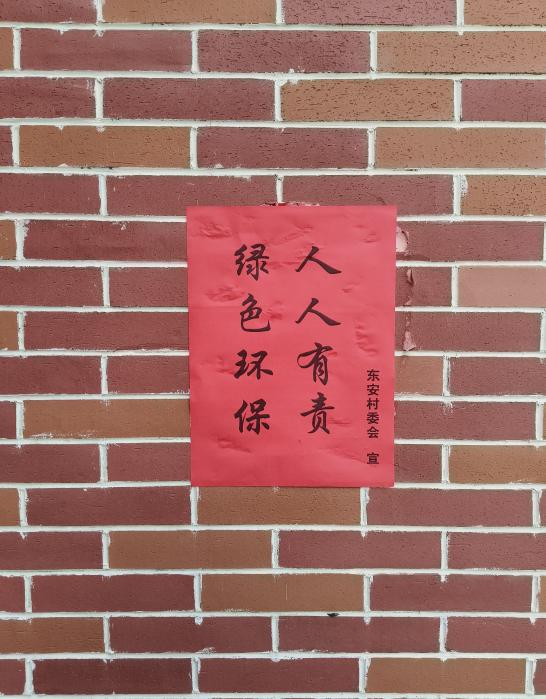 绿色环保
人人有责
东安村委会 宣